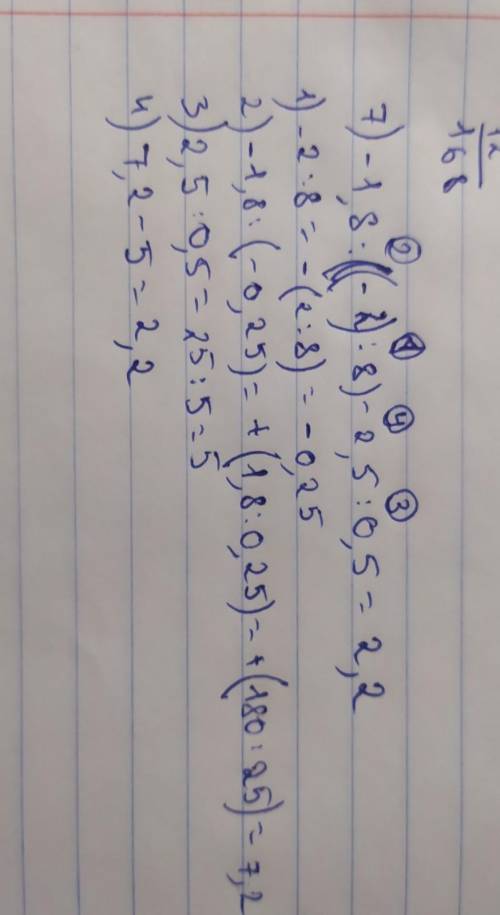 168
② ① ④ ③
7) -1,8:((-2):8)-2,5:0,5=2,2
1) -2:8=-(2:8)=-0,25
2) -1,8:(-0,25)=+(1,8:0,25)=+(180:25)=7,2
3) 2,5:0,5=25:5=5
4) 7,2-5=2,2